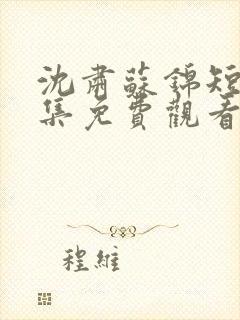 沈肅蘇錦短
集免費觀看
程維